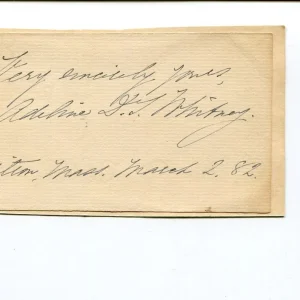 Very sincerely yours,
Adeline D. T. Whitney.
ilton, Mass. March 2. 82.